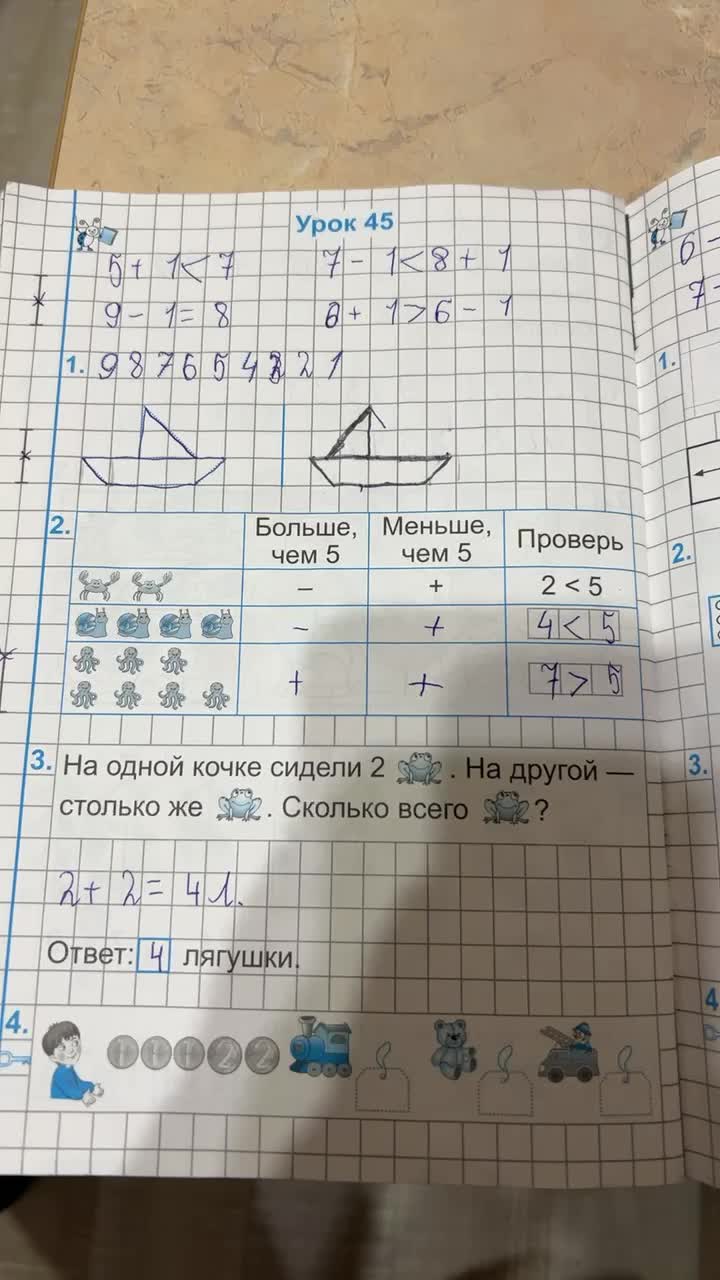 Урок 45
5 + 1 < 7 7 - 1 < 8 + 1 6 -
9 - 1 = 8 6 + 1 > 6 - 1 7 -
1. 9 8 7 6 5 4 3 2 1 1.
2. Больше, чем 5 Меньше, чем 5 Проверь 2.
– + 2 < 5
- + 4 < 5
+ + 7 > 5
3. На одной кочке сидели 2 . На другой — 3.
столько же . Сколько всего ?
2 + 2 = 4 л.
Ответ: 4 лягушки.
4. 1 1 1 2 2 4